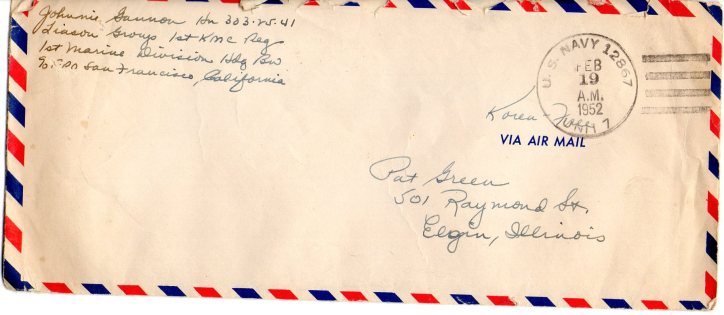 Johnnie Gannon Hn 303·25·41
Liason Group 1st KMC Reg
1st Marine Division Hdq Bn
℅ FPO San Francisco, California
U.S. NAVY 12867
FEB
19
A.M.
1952
Korea
VIA AIR MAIL
Pat Green
501 Raymond St.
Elgin, Illinois